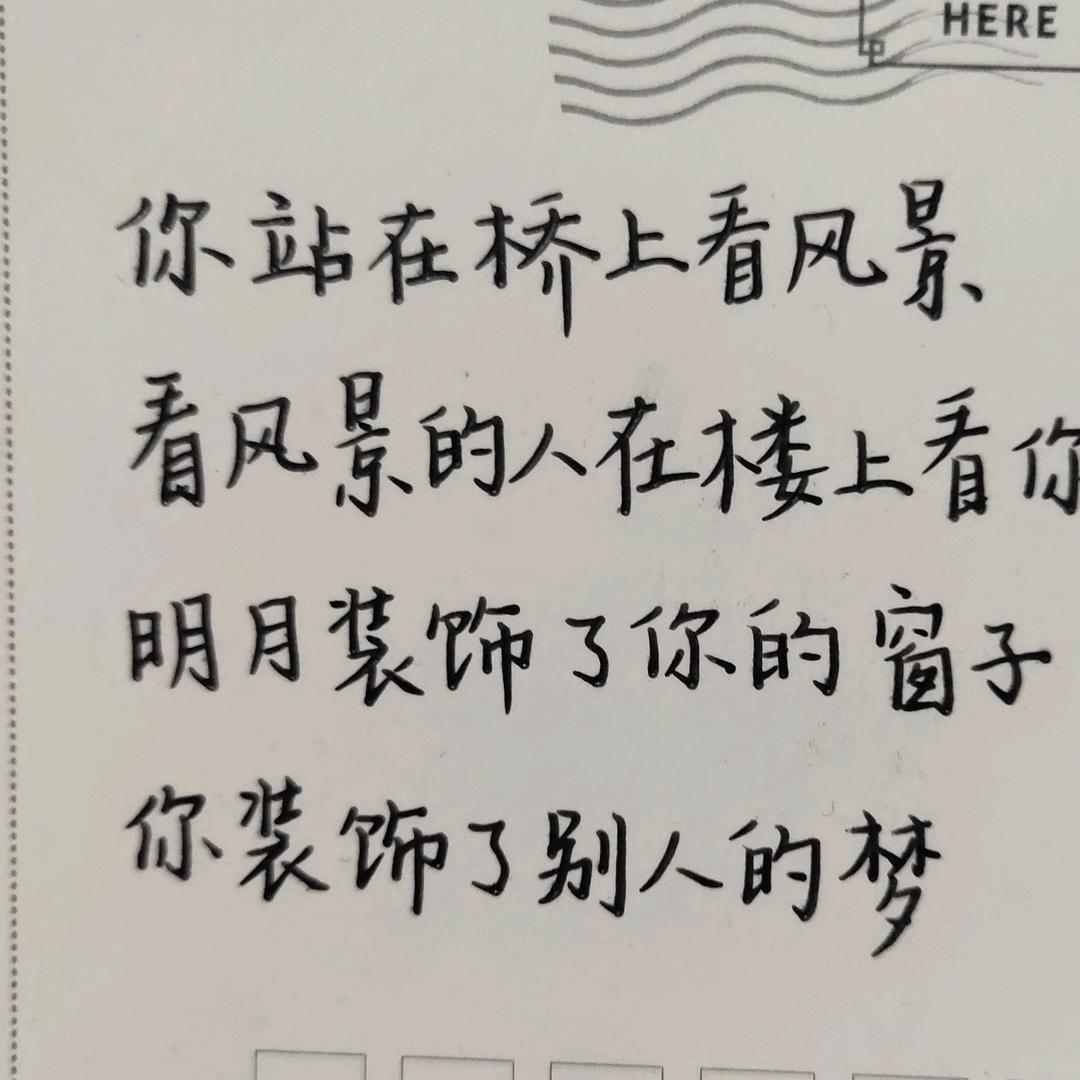 HERE
你站在桥上看风景
看风景的人在楼上看你
明月装饰了你的窗子
你装饰了别人的梦